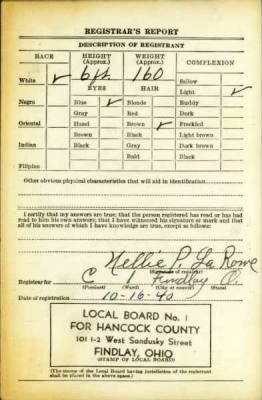 REGISTRAR'S REPORT
DESCRIPTION OF REGISTRANT
RACE HEIGHT (Approx.) WEIGHT (Approx.) COMPLEXION
White ✓ 6 ft. 160 Sallow
EYES HAIR Light ✓
Negro Blue ✓ Blonde Ruddy
Gray Red Dark
Oriental Hazel Brown ✓ Freckled
Brown Black Light brown
Indian Black Gray Dark brown
Bald Black
Filipino
Other obvious physical characteristics that will aid in identification
I certify that my answers are true; that the person registered has read or has had
read to him his own answers; that I have witnessed his signature or mark and that
all of his answers of which I have knowledge are true, except as follows:
Nellie P. La Rowe
(Signature of registrar)
Registrar for C Findlay O.
(Precinct) (Ward) (City or county) (State)
Date of registration 10-16-40
LOCAL BOARD No. 1
FOR HANCOCK COUNTY
101 1-2 West Sandusky Street
FINDLAY, OHIO
(STAMP OF LOCAL BOARD)
(The stamp of the Local Board having jurisdiction of the registrant
shall be placed in the above space.)